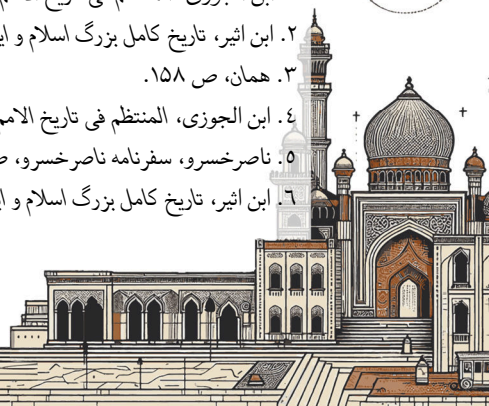 ۲. ابن اثیر، تاریخ کامل بزرگ اسلام و
۳. همان، ص ۱۵۸.
۴. ابن الجوزی، المنتظم فی تاریخ الامم
۵. ناصرخسرو، سفرنامه ناصرخسرو،
۶. ابن اثیر، تاریخ کامل بزرگ اسلام و